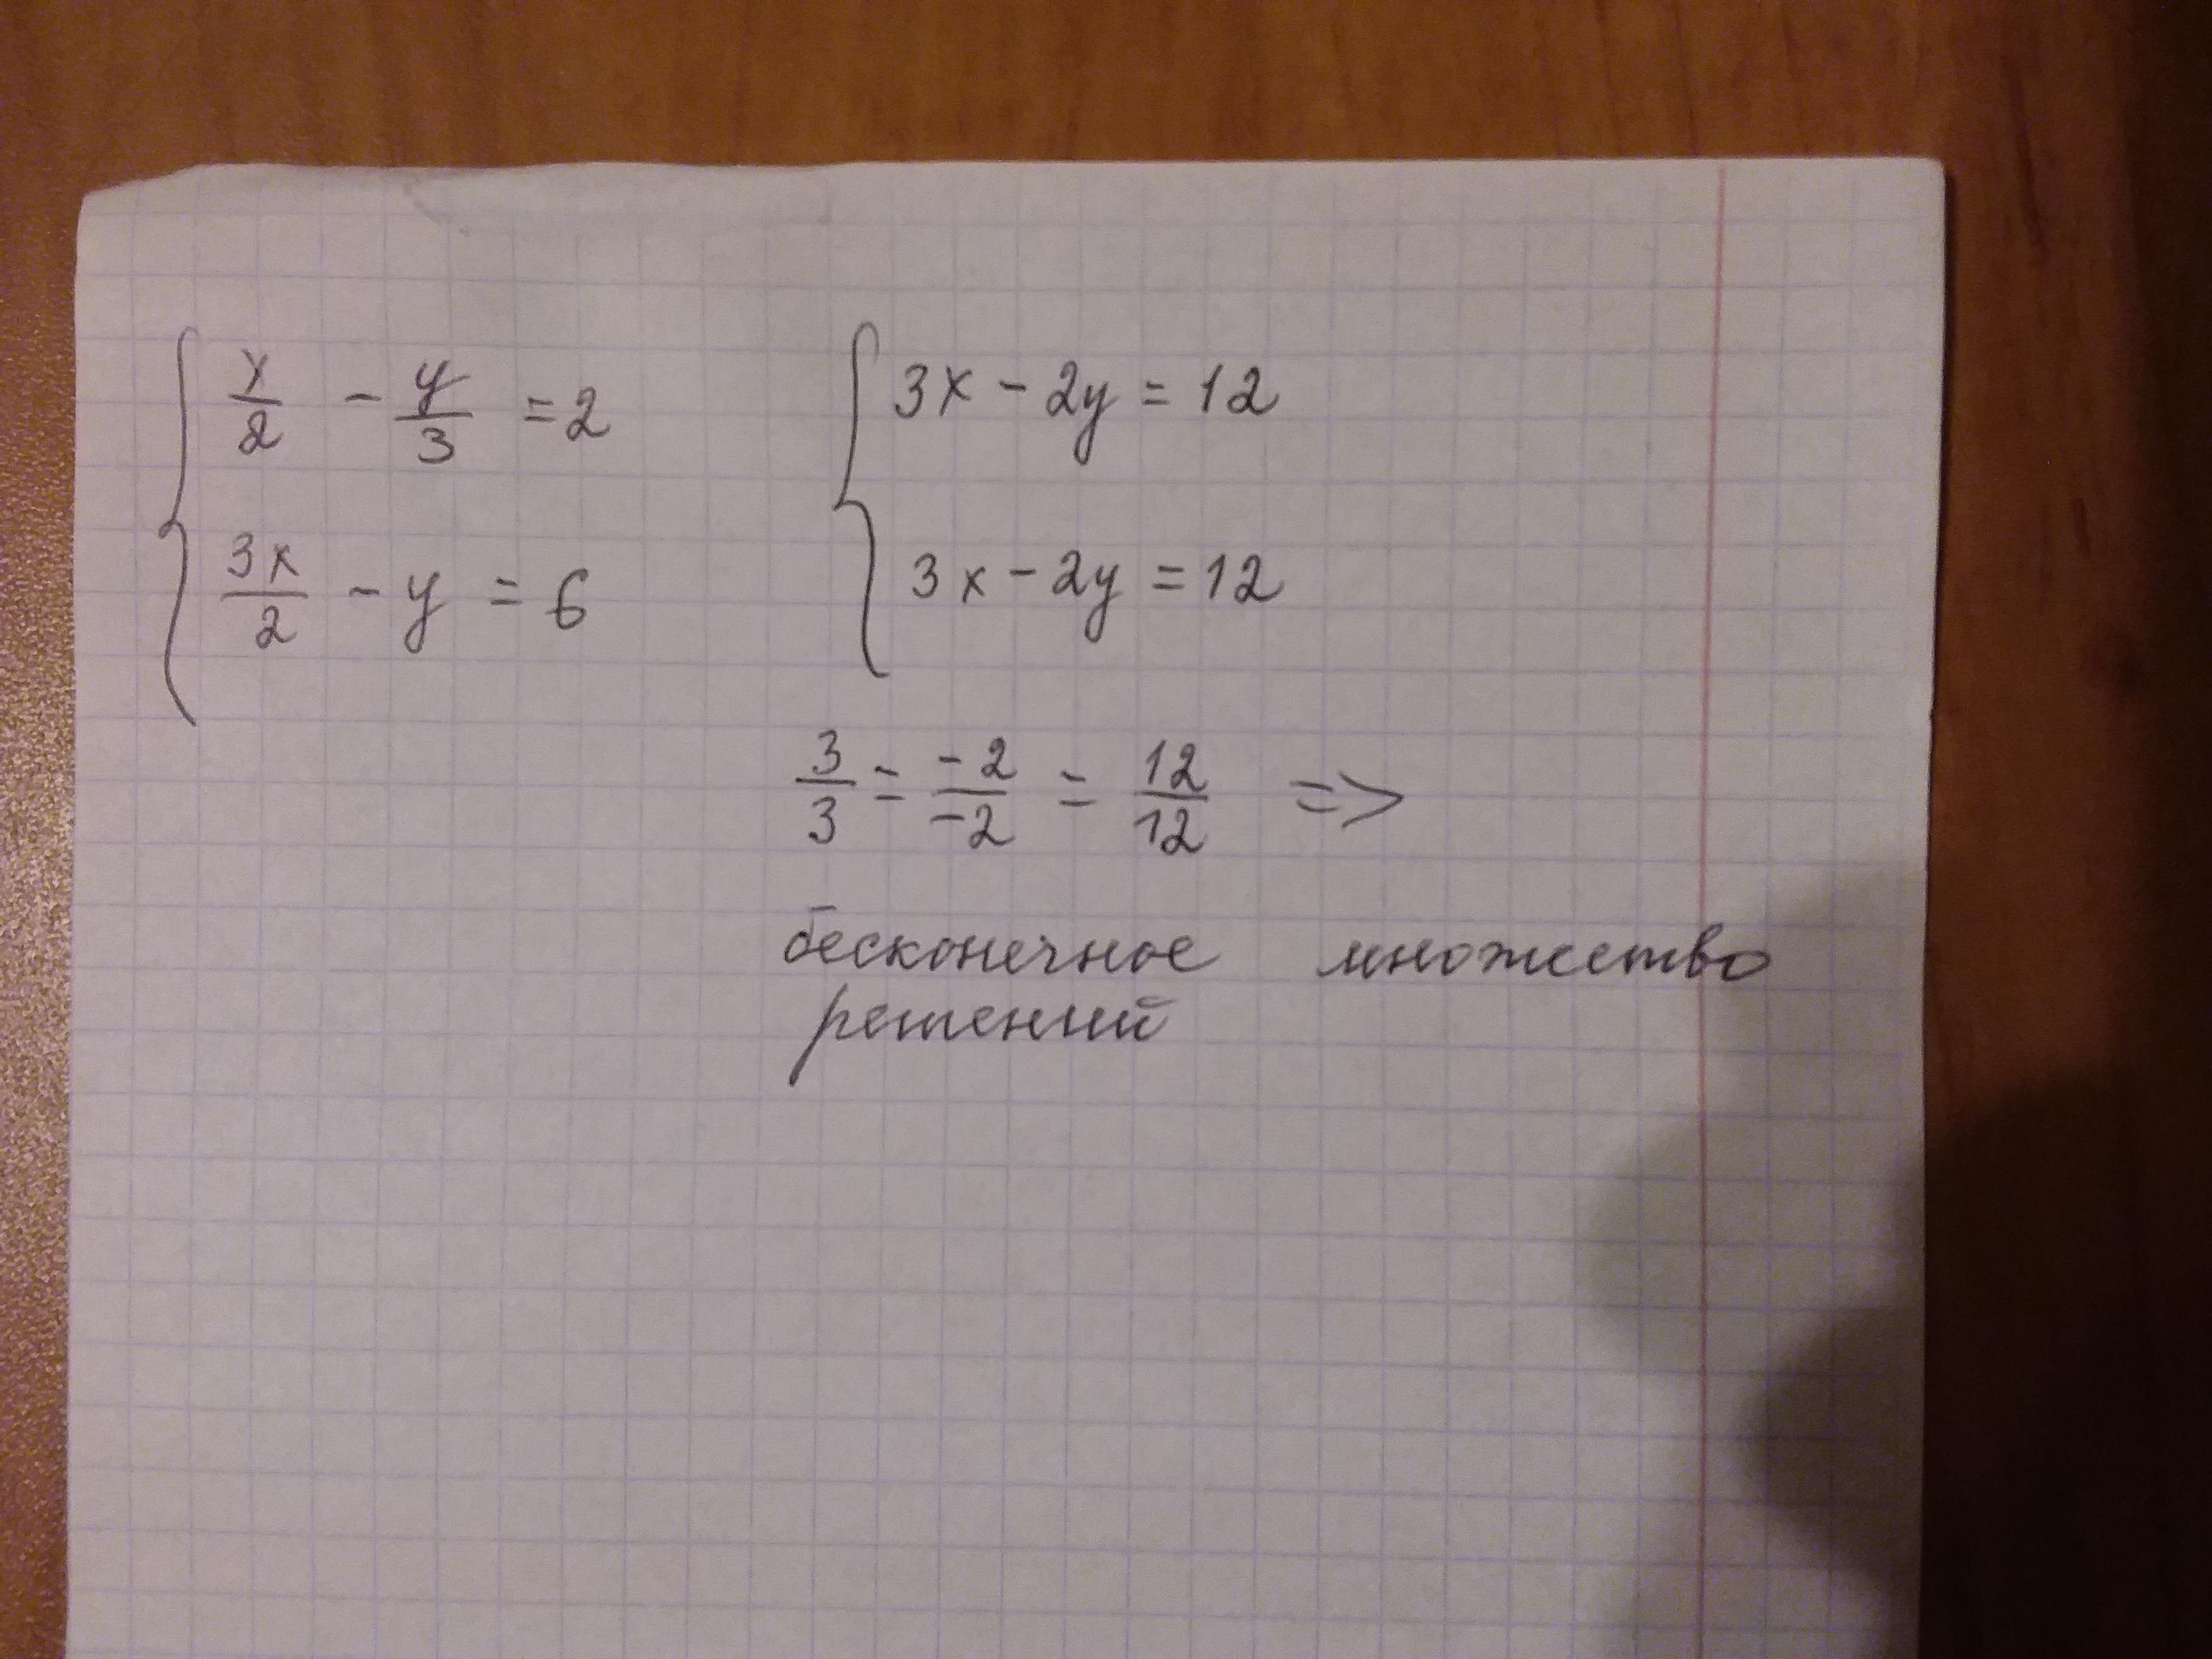 x/2 - y/3 = 2
3x/2 - y = 6
3x - 2y = 12
3x - 2y = 12
3/3 = -2/-2 = 12/12 =>
бесконечное множество
решений